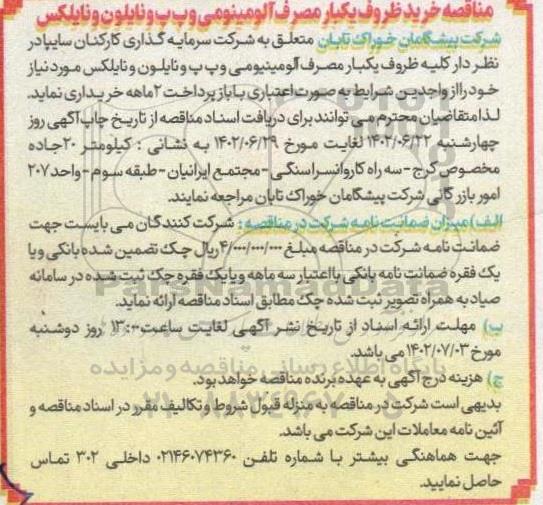 مناقصه خرید ظروف یکبار مصرف آلومینومی و پ پ و نایلون و نایلکس
شرکت پیشگامان خوراک تابان متعلق به شرکت سرمایه گذاری کارکنان سایپا در
نظر دارد کلیه ظروف یکبار مصرف آلومینیومی و پ پ و نایلون و نایلکس مورد نیاز
خود را از واجدین شرایط به صورت اعتباری با باز پرداخت ۲ ماهه خریداری نماید.
لذا متقاضیان محترم می توانند برای دریافت اسناد مناقصه از تاریخ چاپ آگهی روز
چهارشنبه ۱۴۰۲/۰۶/۲۲ لغایت مورخ ۱۴۰۲/۰۶/۲۹ به نشانی : کیلومتر ۲۰ جاده
مخصوص کرج - سه راه کاروانسرا سنگی - مجتمع ایرانیان - طبقه سوم - واحد ۲۰۷
امور بازرگانی شرکت پیشگامان خوراک تابان مراجعه نمایند.
الف) میزان ضمانت نامه شرکت در مناقصه : شرکت کنندگان می بایست جهت
ضمانت نامه شرکت در مناقصه مبلغ ۴/۰۰۰/۰۰۰/۰۰۰ ریال چک تضمین شده بانکی و یا
یک فقره ضمانت نامه بانکی با اعتبار سه ماهه و یا یک فقره چک ثبت شده در سامانه
صیاد به همراه تصویر ثبت شده چک مطابق اسناد مناقصه ارائه نماید.
ب) مهلت ارائه اسناد از تاریخ نشر آگهی لغایت ساعت ۱۳:۰۰ روز دوشنبه
مورخ ۱۴۰۲/۰۷/۰۳ می باشد.
ج) هزینه درج آگهی به عهده برنده مناقصه خواهد بود.
بدیهی است شرکت در مناقصه به منزله قبول شروط و تکالیف مقرر در اسناد مناقصه و
آئین نامه معاملات این شرکت می باشد.
جهت هماهنگی بیشتر با شماره تلفن ۰۲۱۴۶۰۷۴۳۶۰ داخلی ۳۰۲ تماس
حاصل نمایید.
ParsNamadData
پایگاه اطلاع رسانی مناقصه و مزایده